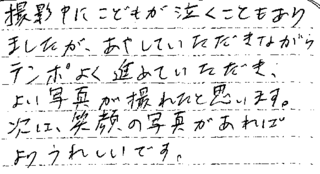 撮影中にこどもが泣くこともあり
ましたが、あやしていただきながら
テンポよく進めていただき、
よい写真が撮れたと思います。
次は、笑顔の写真があれば
よりうれしいです。